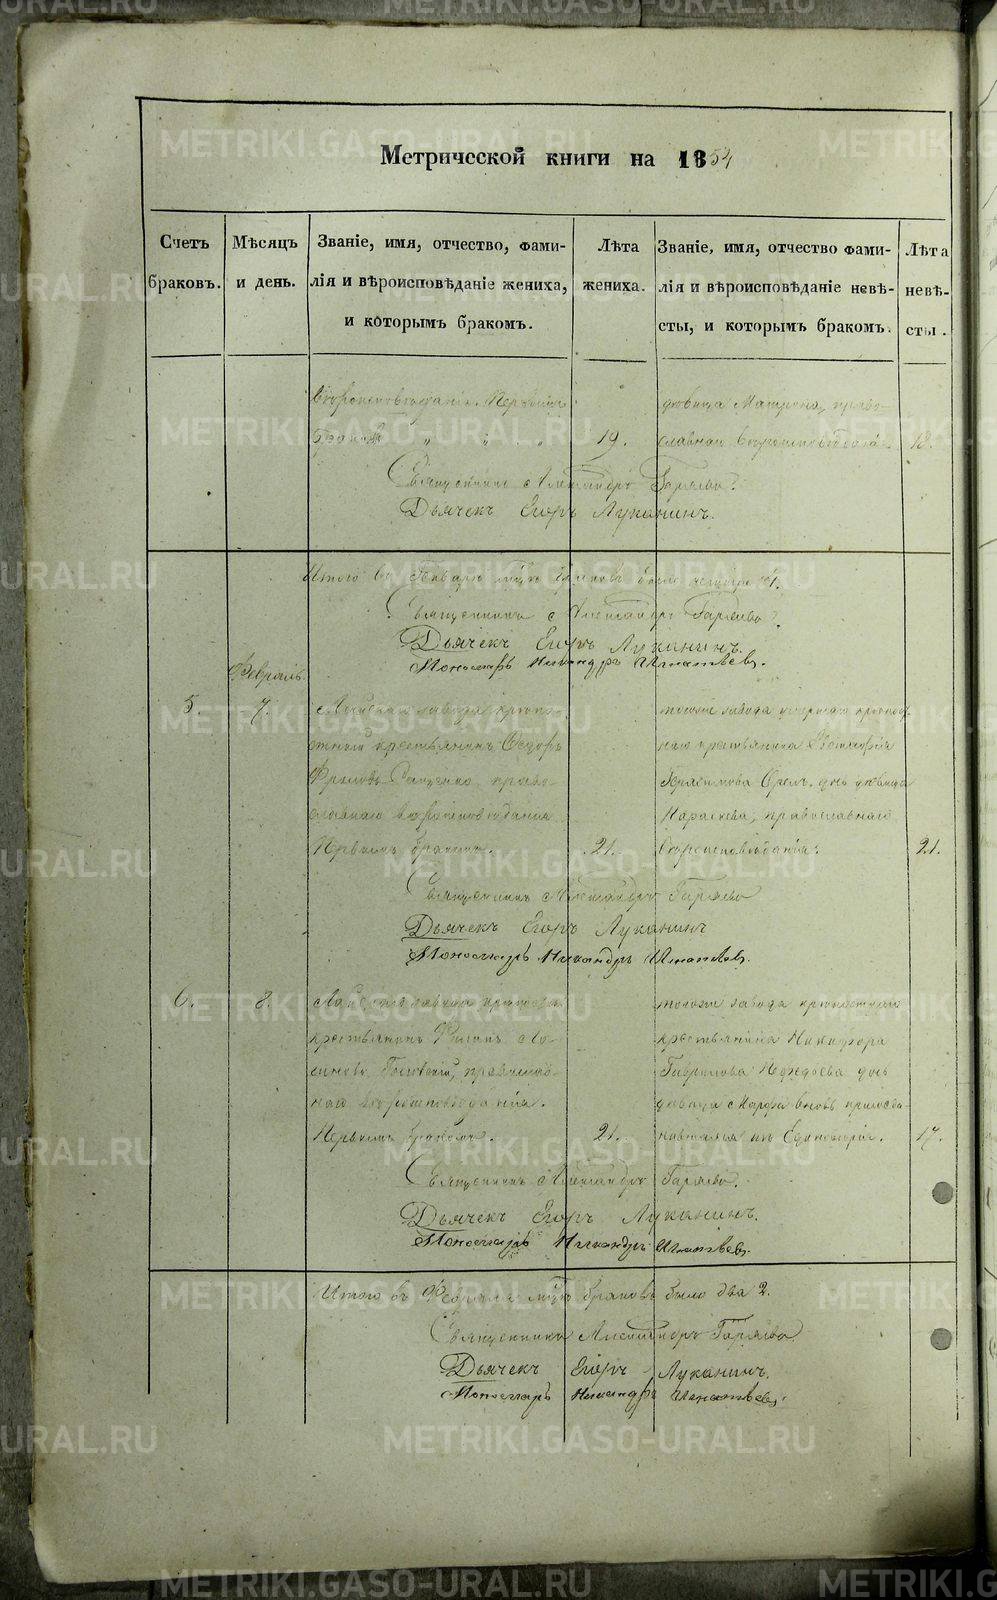 Метрической книги на 1854
Счетъ браковъ.
Мѣсяцъ и день.
Званіе, имя, отчество, фами-
лія и вѣроисповѣданіе жениха,
и которымъ бракомъ.
Лѣта жениха.
Званіе, имя, отчество фами-
лія и вѣроисповѣданіе невѣ-
сты, и которымъ бракомъ.
Лѣта невѣ-
сты.
вѣроисповѣданія. Первымъ
бракомъ " " 19.
дѣвица Матрона, право-
славнаго вѣроисповѣданія 18.
Священникъ Александръ
Дьячекъ Егоръ Луканинъ.
Итого въ Генварѣ мцѣ браковъ было четыре 4.
Священникъ Александръ
Дьячекъ Егоръ Луканинъ.
Пономарь Никандръ Игнатьевъ.
Февраль
5. 7.
завода крѣпо-
стный крестьянинъ Ѳедоръ
Фроловъ право-
славнаго вѣроисповѣданія
Первымъ бракомъ. 21.
тогоже завода крѣпост-
наго крестьянина
Герасимова дочь дѣвица
Параскева, православнаго
вѣроисповѣданія. 21.
Священникъ Александръ
Дьячекъ Егоръ Луканинъ
Пономарь Никандръ Игнатьевъ.
6. 8.
завода крѣпостн.
крестьянинъ
православ-
наго вѣроисповѣданія.
Первымъ бракомъ. 21.
тогоже завода крѣпостнаго
крестьянина Никифора
Гаврилова дочь
дѣвица Марфа вновь присоеди-
нившаяся къ Единовѣрію. 17.
Священникъ Александръ
Дьячекъ Егоръ Луканинъ.
Пономарь Никандръ Игнатьевъ.
Итого въ Февралѣ мцѣ браковъ было два 2.
Священникъ Александръ
Дьячекъ Егоръ Луканинъ.
Пономарь Никандръ Игнатьевъ.
METRIKI.GASO-URAL.RU